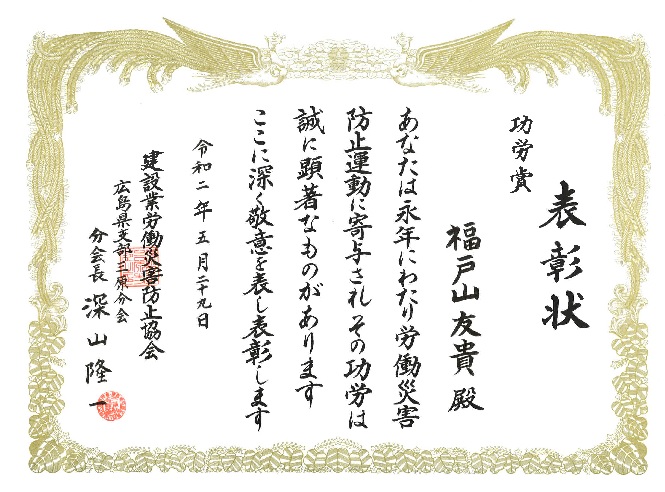 表彰状
功労賞
福戸山友貴 殿
あなたは永年にわたり労働災害
防止運動に寄与されその功労は
誠に顕著なものがあります
ここに深く敬意を表し表彰します
令和二年五月二十九日
建設業労働災害防止協会
広島県支部三原分会
分会長 深山隆一